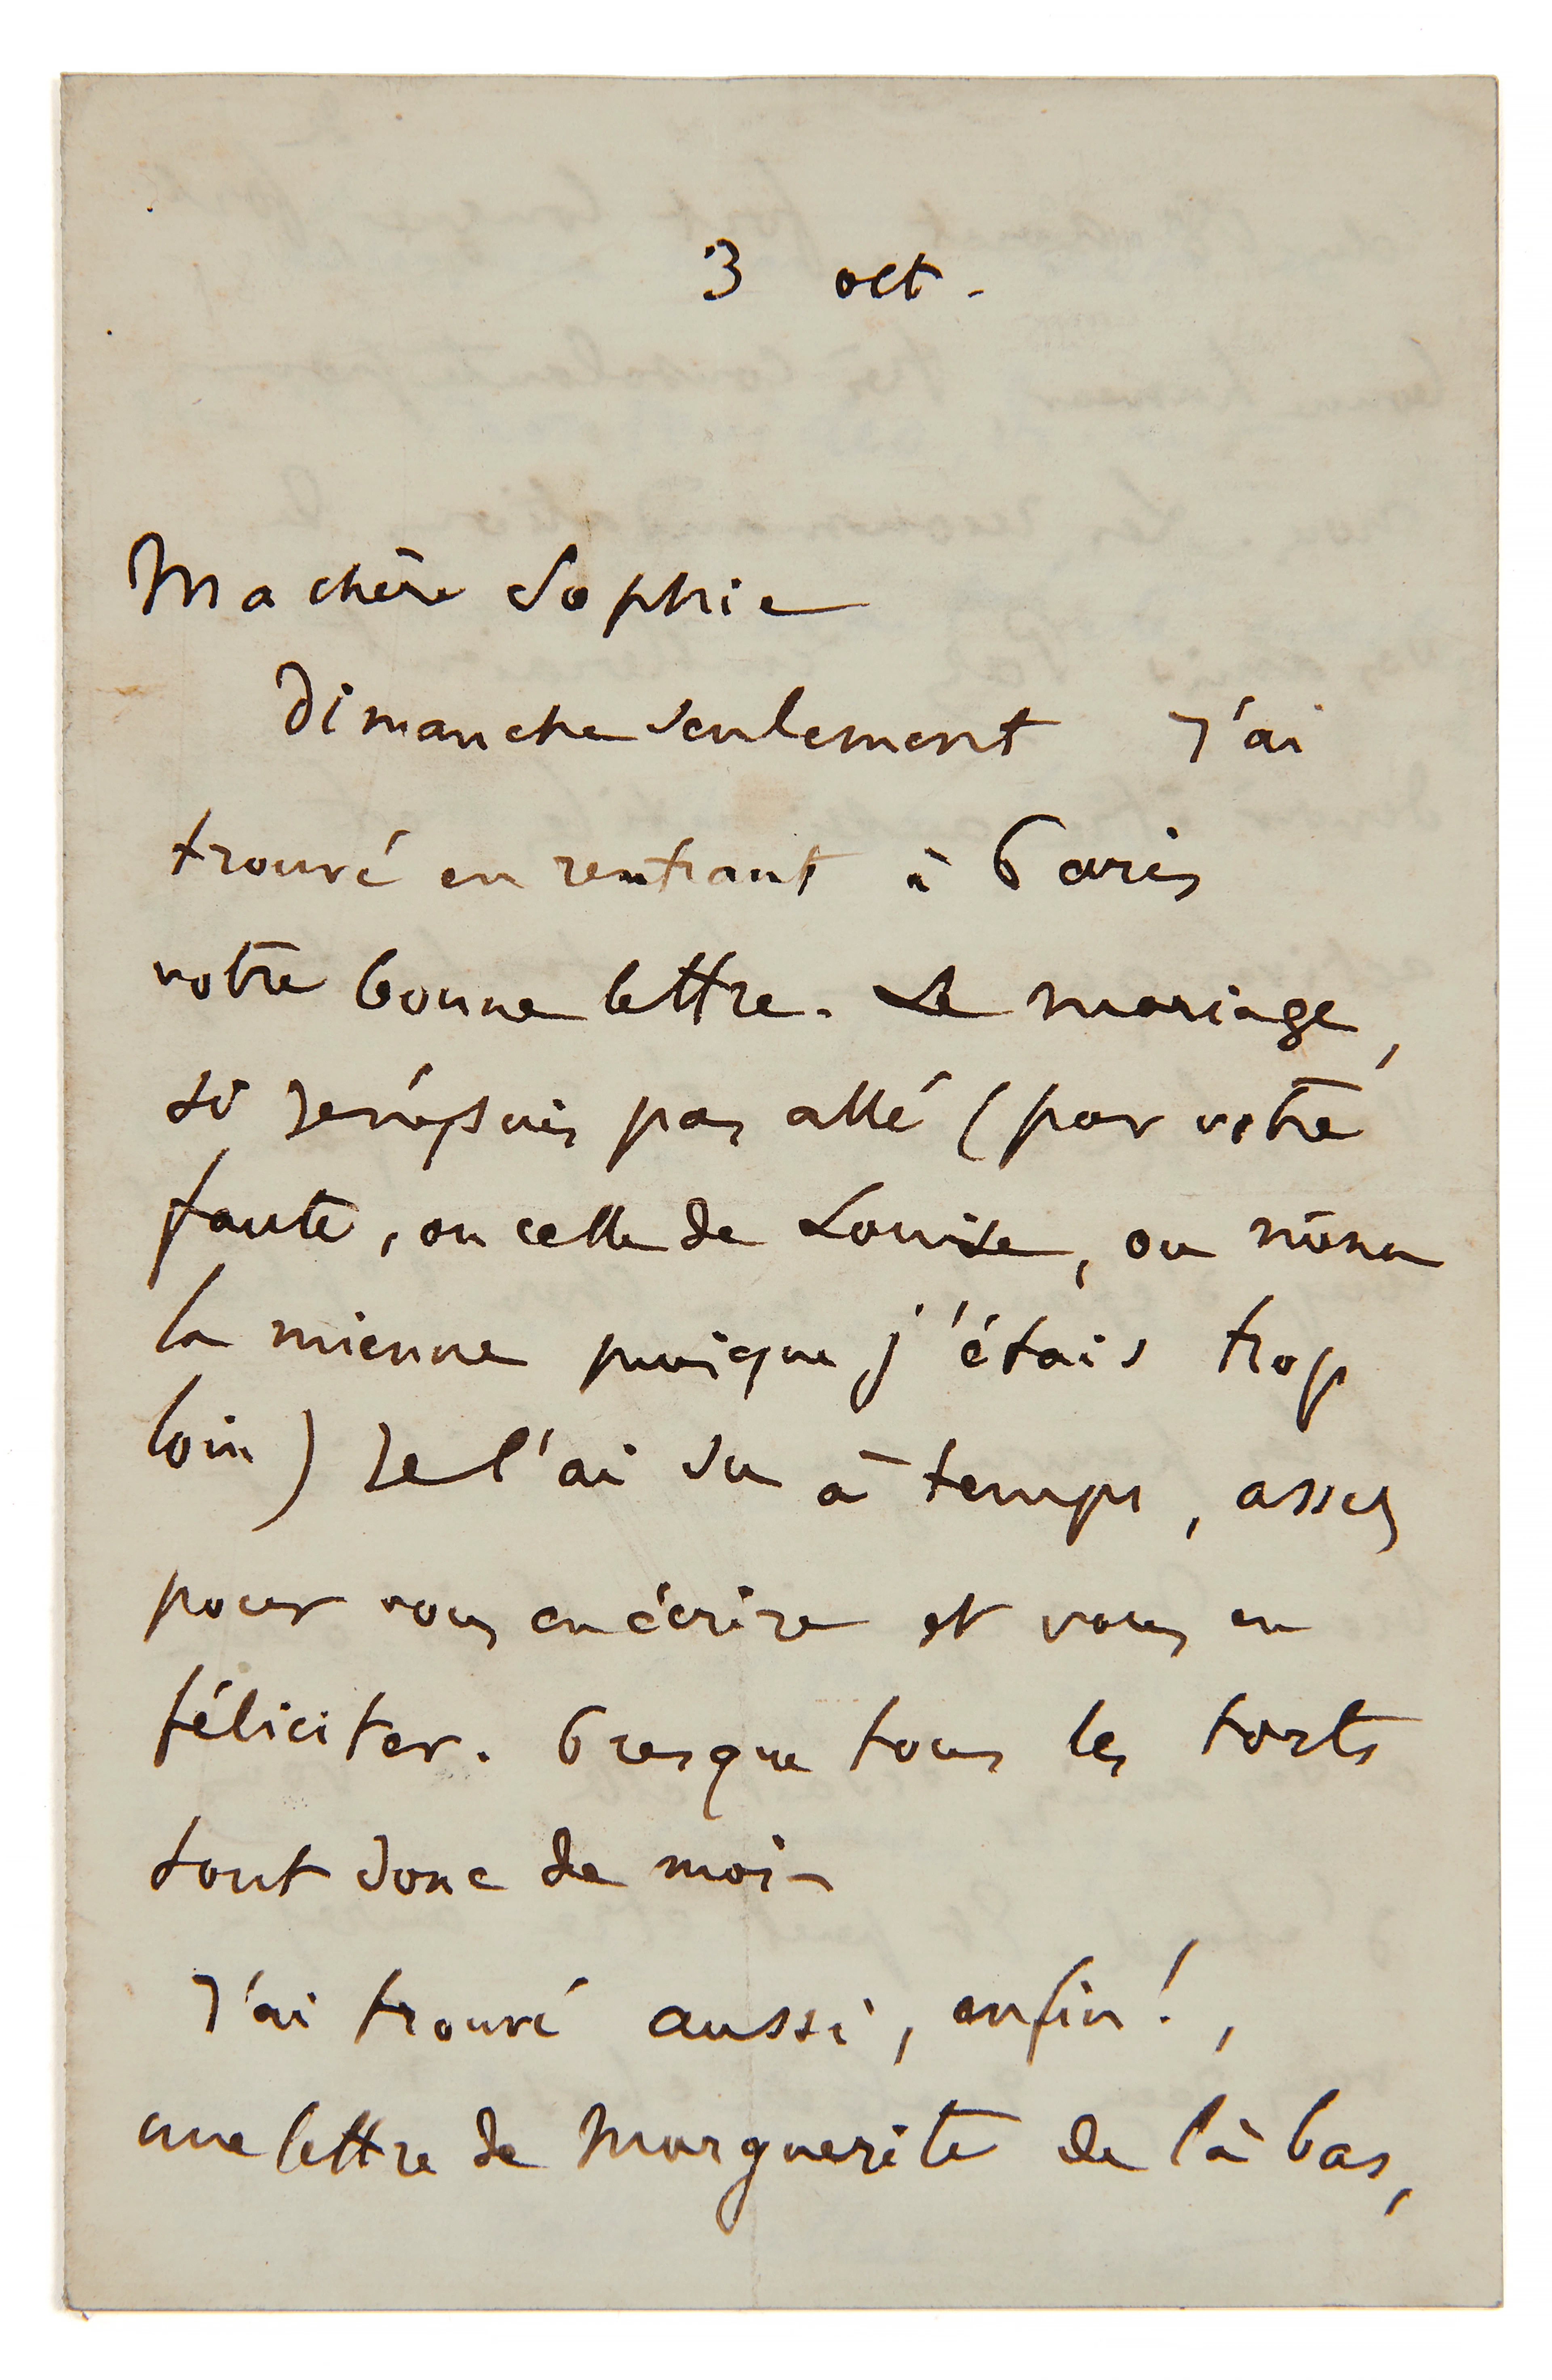 3 oct.
Ma chère Sophie
Dimanche seulement j'ai
trouvé en rentrant à Paris
votre bonne lettre. Le mariage,
si je n'y suis pas allé (par votre
faute, ou celle de Louise, ou même
la mienne puisque j'étais trop
loin) je l'ai su à temps, assez
pour vous en écrire et vous en
féliciter. Presque tous les torts
sont donc de moi -
J'ai trouvé aussi, enfin !,
une lettre de Marguerite de là bas,